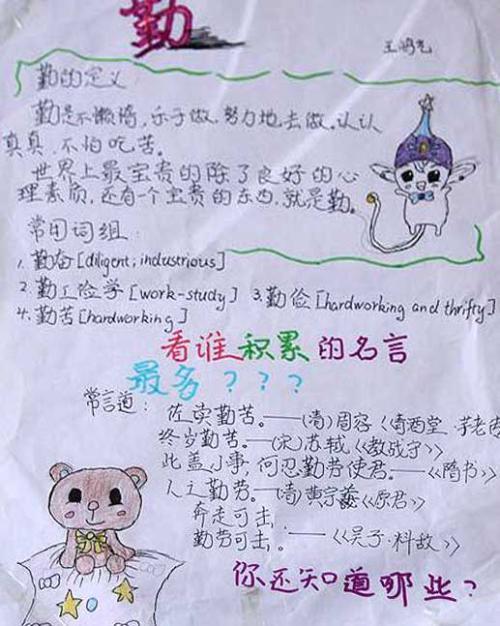 勤
王鸿艺
勤的定义
勤是不懒惰,乐于做,努力地去做。认认
真真,不怕吃苦。
世界上最宝贵的除了良好的心
理素质,还有一个宝贵的东西,就是勤。
常用词组:
1.勤奋[diligent; industrious]
2.勤工俭学[work-study] 3.勤俭[hardworking and thrifty]
4.勤苦[hardworking]
看谁积累的名言
最多???
常言道: 佐读勤苦。——(清)周容《春酒堂·芋老
终岁勤苦。——(宋)苏轼《教战守》
此盖小事,何忍勤劳使君。——《隋书》
人之勤劳。——(清)黄宗羲《原君》
奔走可击,
勤劳可击。——《吴子·料敌》
你还知道哪些?